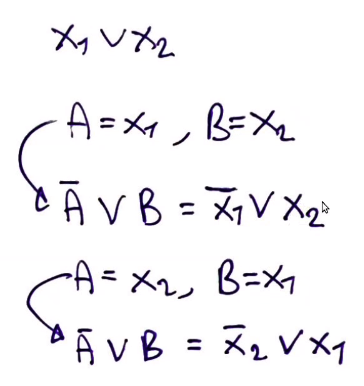 x₁ ∨ x₂
A = x₁ , B = x₂
Ā ∨ B = x̄₁ ∨ x₂
A = x₂, B = x₁
Ā ∨ B = x̄₂ ∨ x₁